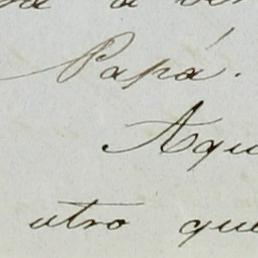 a
Papá.
Aqu
utro que